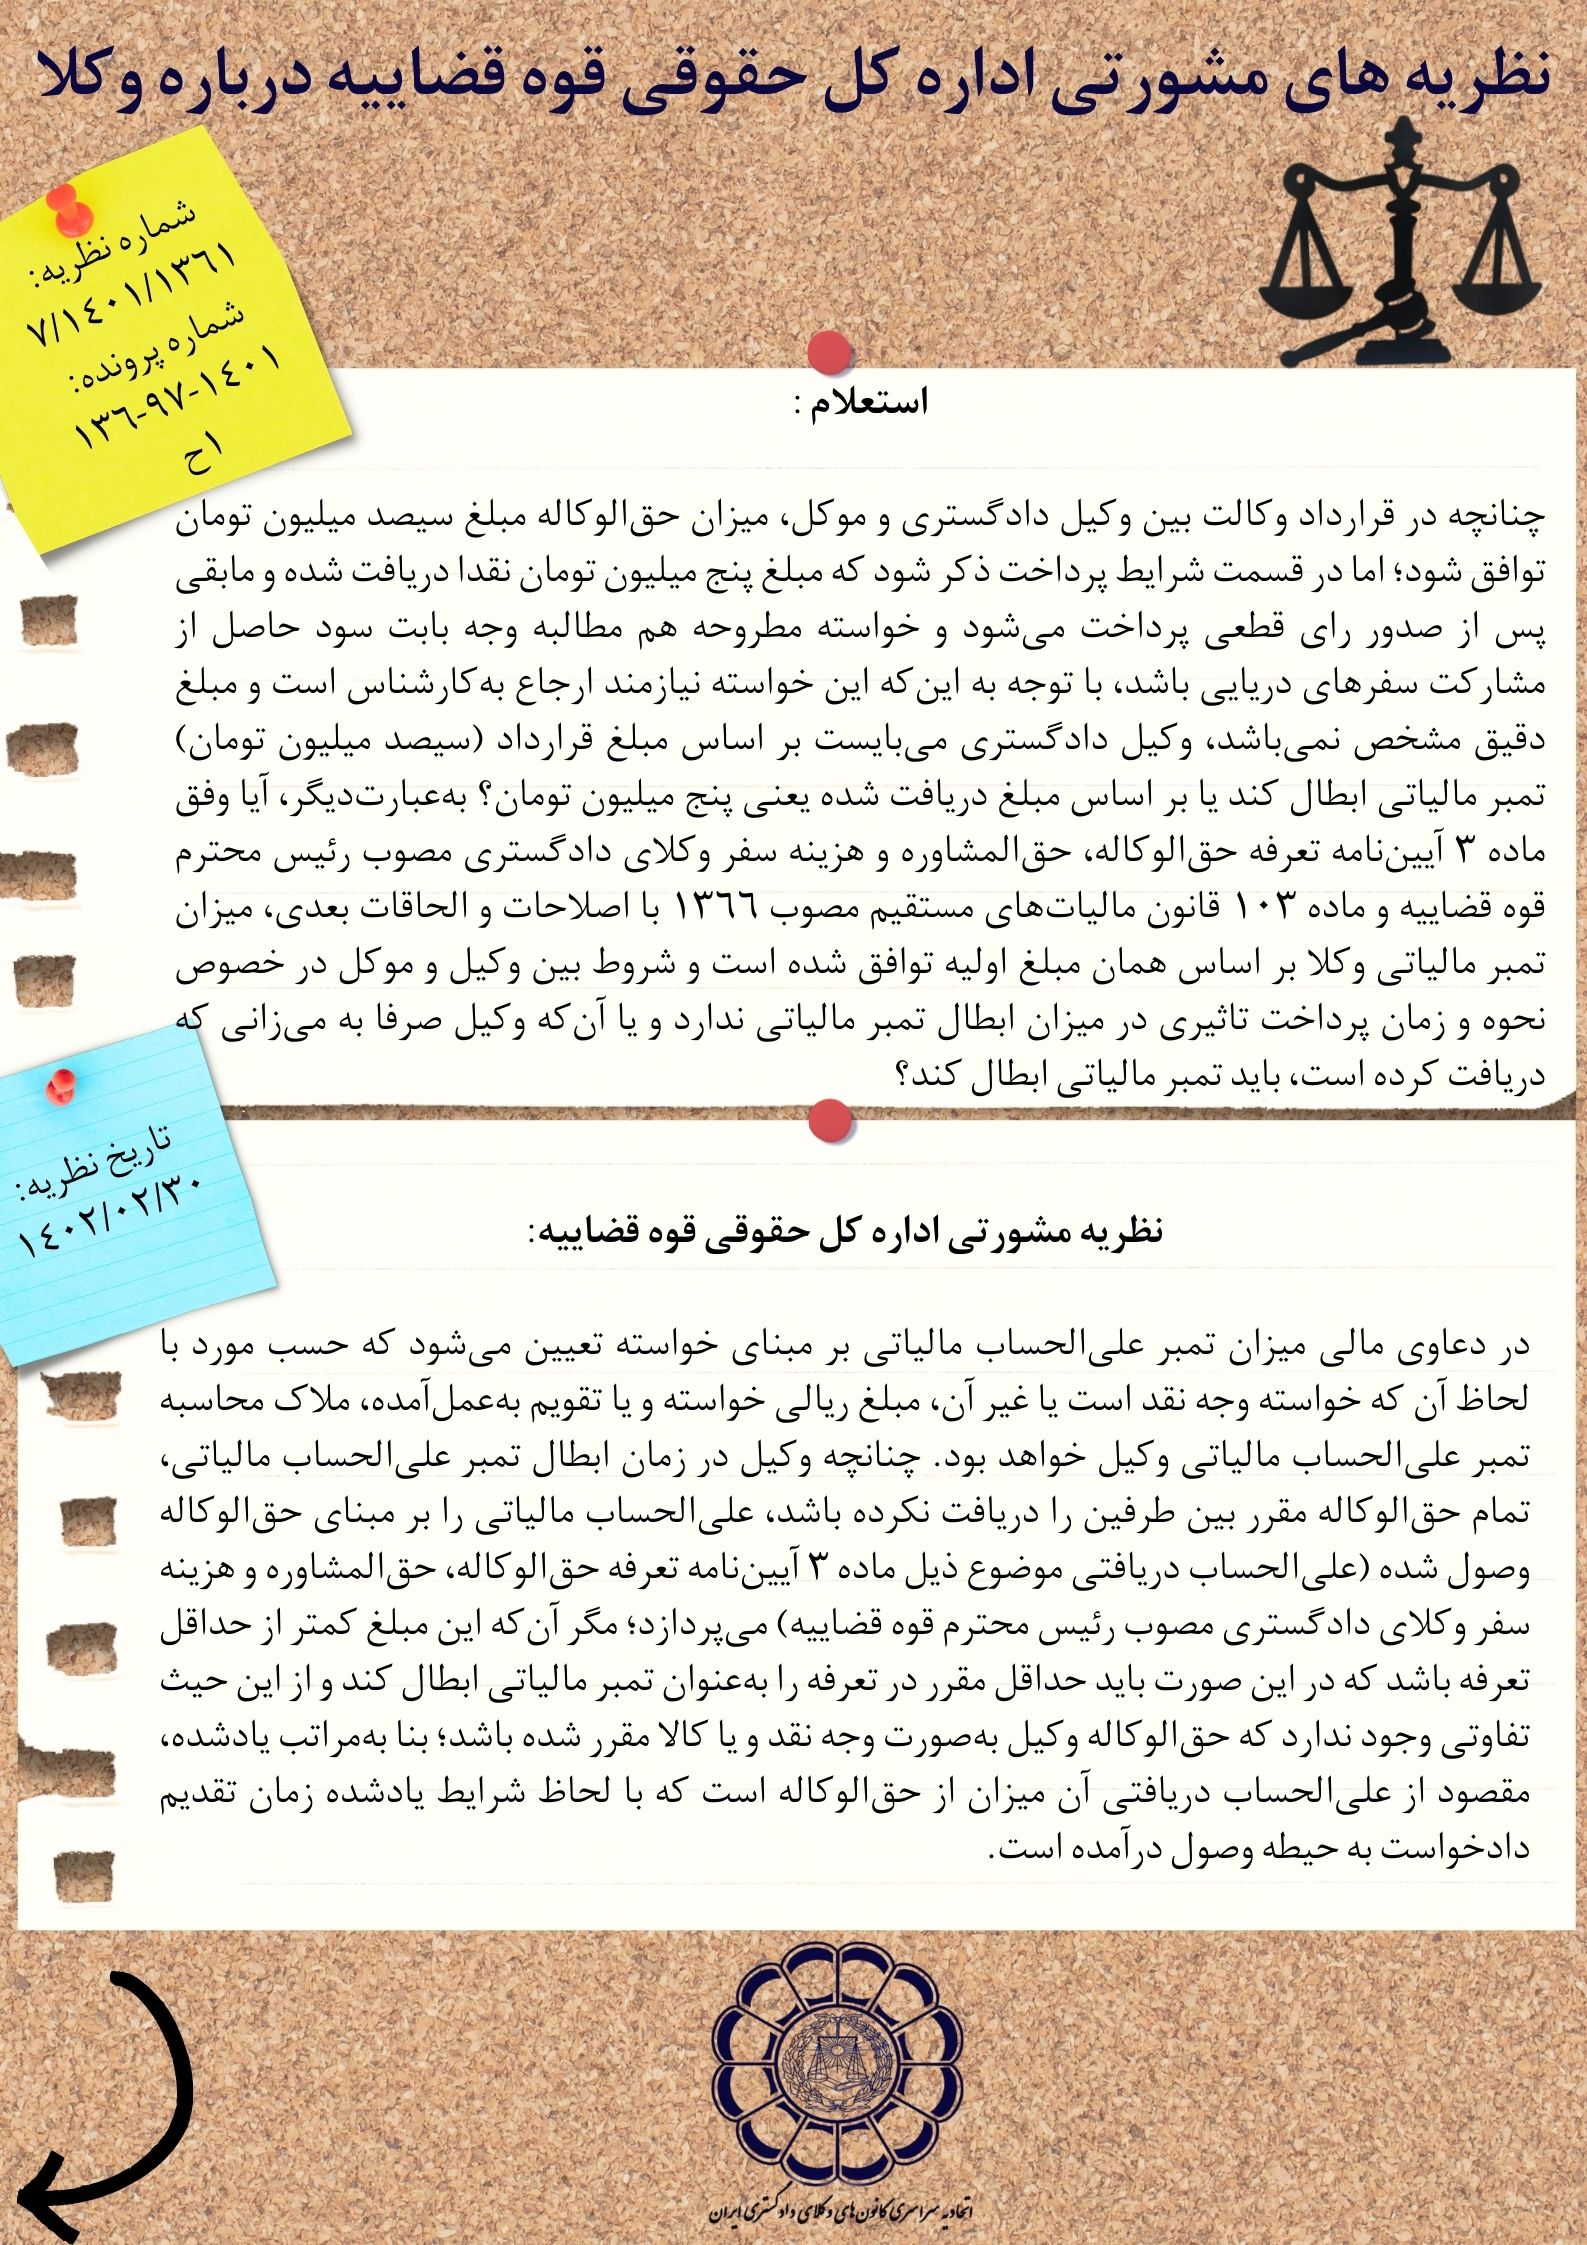 نظریه های مشورتی اداره کل حقوقی قوه قضاییه درباره وکلا
شماره نظریه:
٧/١٤٠١/١٣٦١
شماره پرونده:
١٤٠١-٩٧-١٣٦
١ح
استعلام :
چنانچه در قرارداد وکالت بین وکیل دادگستری و موکل، میزان حق‌الوکاله مبلغ سیصد میلیون تومان
توافق شود؛ اما در قسمت شرایط پرداخت ذکر شود که مبلغ پنج میلیون تومان نقدا دریافت شده و مابقی
پس از صدور رای قطعی پرداخت می‌شود و خواسته مطروحه هم مطالبه وجه بابت سود حاصل از
مشارکت سفرهای دریایی باشد، با توجه به این‌که این خواسته نیازمند ارجاع به‌کارشناس است و مبلغ
دقیق مشخص نمی‌باشد، وکیل دادگستری می‌بایست بر اساس مبلغ قرارداد (سیصد میلیون تومان)
تمبر مالیاتی ابطال کند یا بر اساس مبلغ دریافت شده یعنی پنج میلیون تومان؟ به‌عبارت‌دیگر، آیا وفق
ماده ٣ آیین‌نامه تعرفه حق‌الوکاله، حق‌المشاوره و هزینه سفر وکلای دادگستری مصوب رئیس محترم
قوه قضاییه و ماده ١٠٣ قانون مالیات‌های مستقیم مصوب ١٣٦٦ با اصلاحات و الحاقات بعدی، میزان
تمبر مالیاتی وکلا بر اساس همان مبلغ اولیه توافق شده است و شروط بین وکیل و موکل در خصوص
نحوه و زمان پرداخت تاثیری در میزان ابطال تمبر مالیاتی ندارد و یا آن‌که وکیل صرفا به می‌زانی که
دریافت کرده است، باید تمبر مالیاتی ابطال کند؟
تاریخ نظریه:
١٤٠٢/٠٢/٣٠
نظریه مشورتی اداره کل حقوقی قوه قضاییه:
در دعاوی مالی میزان تمبر علی‌الحساب مالیاتی بر مبنای خواسته تعیین می‌شود که حسب مورد با
لحاظ آن که خواسته وجه نقد است یا غیر آن، مبلغ ریالی خواسته و یا تقویم به‌عمل‌آمده، ملاک محاسبه
تمبر علی‌الحساب مالیاتی وکیل خواهد بود. چنانچه وکیل در زمان ابطال تمبر علی‌الحساب مالیاتی،
تمام حق‌الوکاله مقرر بین طرفین را دریافت نکرده باشد، علی‌الحساب مالیاتی را بر مبنای حق‌الوکاله
وصول شده (علی‌الحساب دریافتی موضوع ذیل ماده ٣ آیین‌نامه تعرفه حق‌الوکاله، حق‌المشاوره و هزینه
سفر وکلای دادگستری مصوب رئیس محترم قوه قضاییه) می‌پردازد؛ مگر آن‌که این مبلغ کمتر از حداقل
تعرفه باشد که در این صورت باید حداقل مقرر در تعرفه را به‌عنوان تمبر مالیاتی ابطال کند و از این حیث
تفاوتی وجود ندارد که حق‌الوکاله وکیل به‌صورت وجه نقد و یا کالا مقرر شده باشد؛ بنا به‌مراتب یادشده،
مقصود از علی‌الحساب دریافتی آن میزان از حق‌الوکاله است که با لحاظ شرایط یادشده زمان تقدیم
دادخواست به حیطه وصول درآمده است.
اتحادیه سراسری کانون‌های وکلای دادگستری ایران